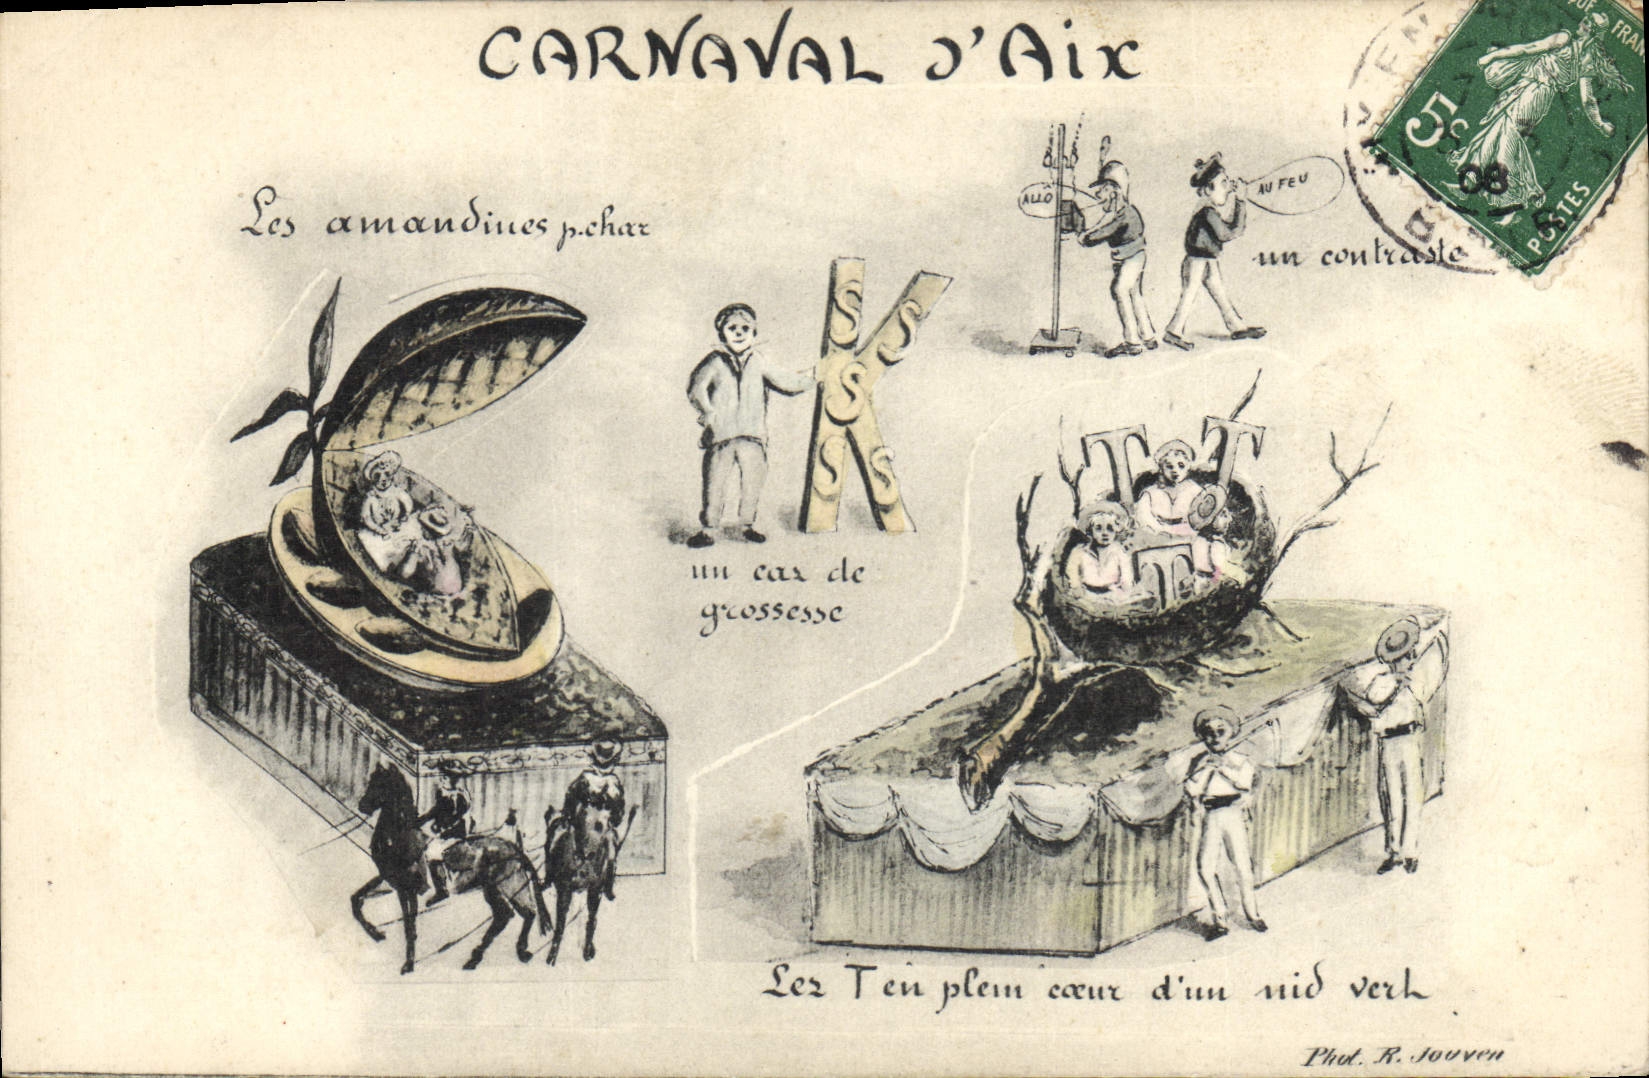 CARNAVAL d'Aix
Les amandines p.char
ALLÔ
AU FEU
un contraste
K
S
S
S
S
S
un cas de
grossesse
T T
T
Les T en plein cœur d'un nid vert
Phot. R. Jouven
5
POSTES
08